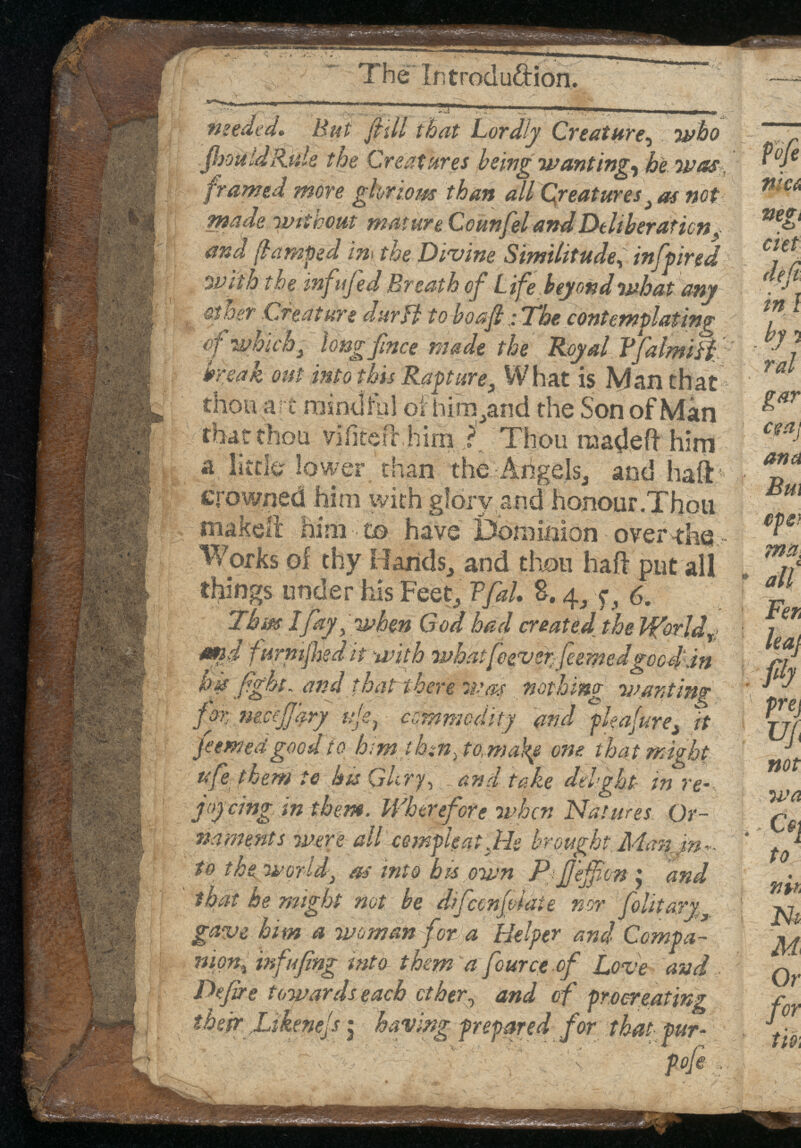 The Introduction.
needed. But ſtill that Lordly Creature, who
ſhouldRule the Creatures being wanting, he was
framed more glorious than all Creatures, as not
made without mature Counſel and Deliberation,
and ſtamped in the Divine Similitude, inſpired
with the infuſed Breath of Life beyond what any
other Creature durſt to boaſt : The contemplating
of which, long ſince made the Royal Pſalmiſt
break out into this Rapture, What is Man that
thou art mindful of him,and the Son of Man
that thou viſiteſt him ? Thou madeſt him
a little lower than the Angels, and haſt
crowned him with glory and honour.Thou
makeſt him to have Dominion over the
Works of thy Hands, and thou haſt put all
things under his Feet, Pſal. 8. 4, 5, 6.
Thus I ſay, when God had created the World,
and furniſhed it with whatſoever ſeemed good in
his ſight, and that there was nothing wanting
for neceſſary uſe, commodity and pleaſure, it
ſeemed good to him then, to make one that might
uſe them to his Glory, and take delight in re-
joycing in them. Wherefore when Natures Or-
naments were all compleat,He brought Man in-
to the world, as into his own P ſſeſſion ; and
that he might not be diſconſolate nor ſolitary,
gave him a woman for a Helper and Compa-
nion, infuſing into them a ſource of Love and
Deſire towards each other, and of procreating
their Likeneſs ; having prepared for that pur-
poſe
poſe
nica
neg
ciet
deſi
in
by
ral
gar
cea
and
But
ope
ma
all
Fer
leaſ
ſily
preſ
Uſ
not
wa
Co
to
nin
Na
M
Or
for
tio